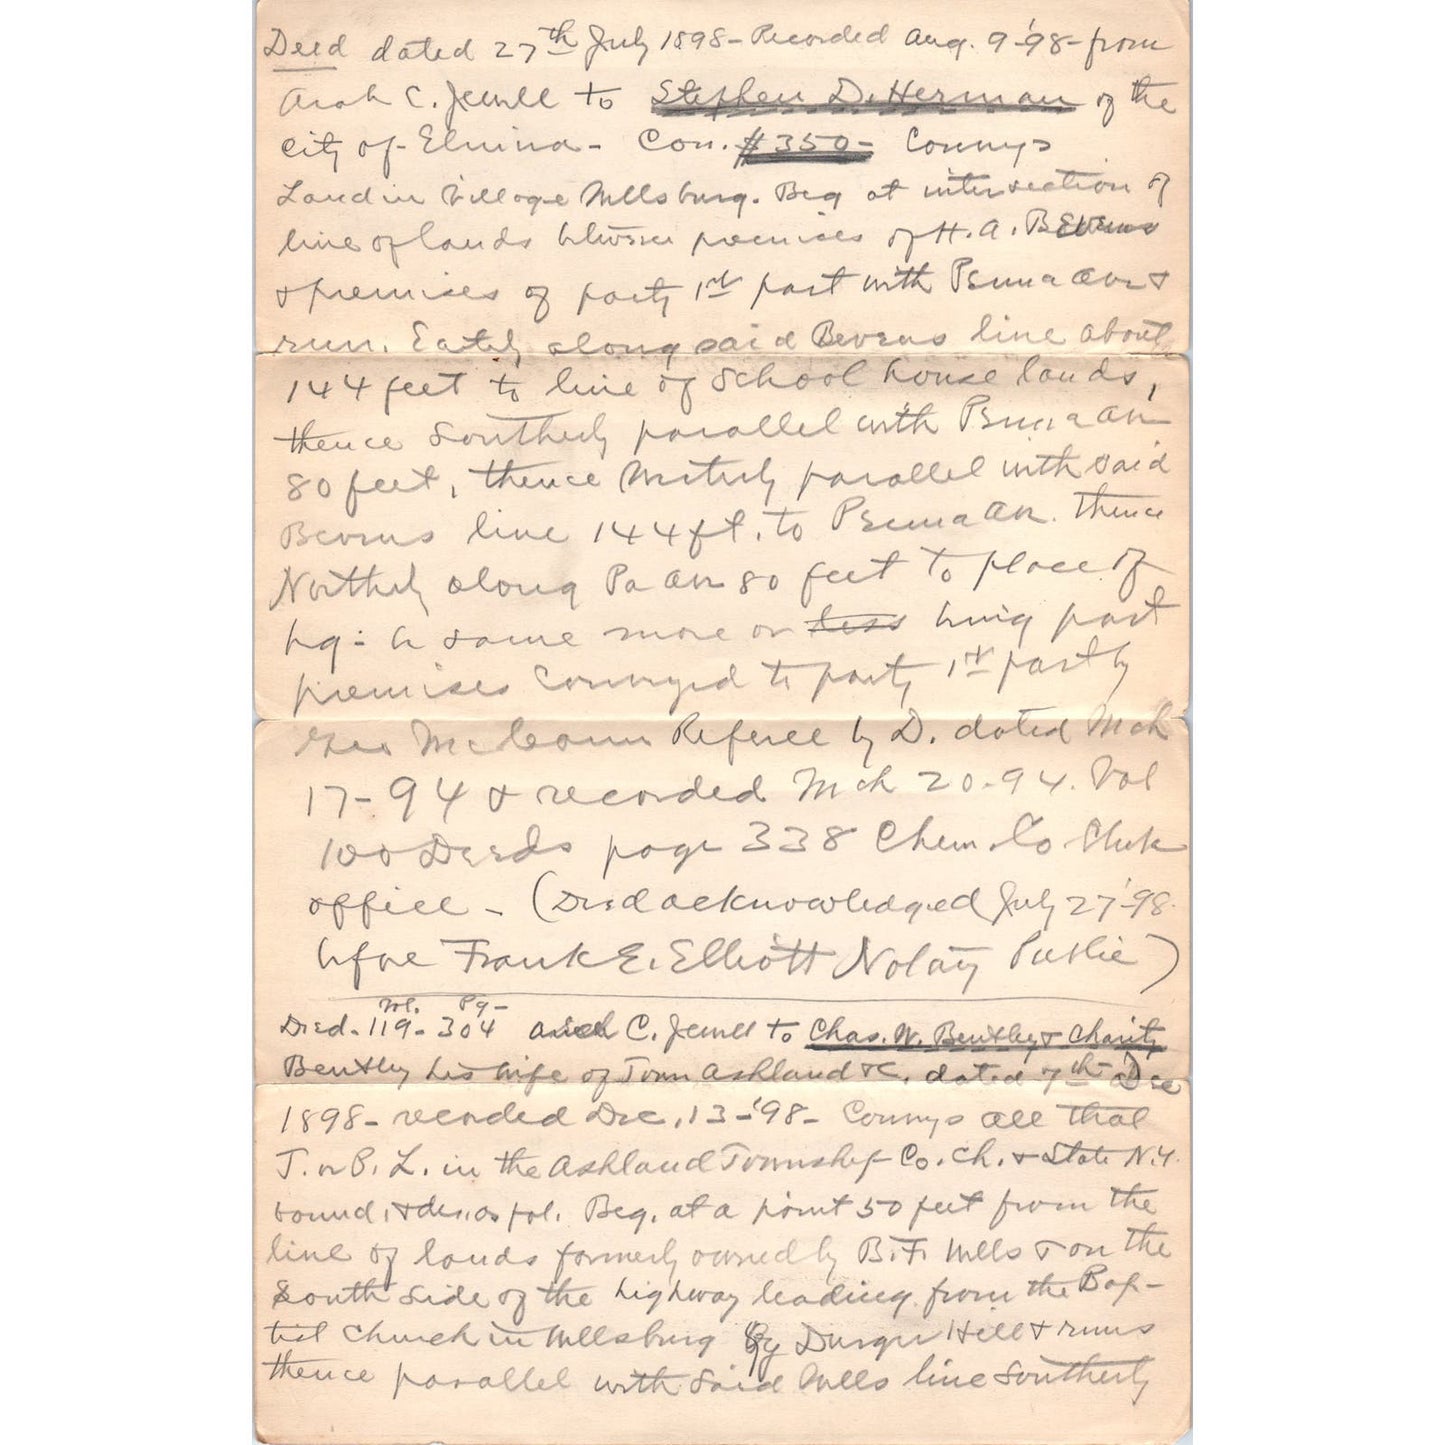 Deed dated 27th July 1898 - Recorded Aug. 9-'98 - from
C. Jewell to Stephen D. Herman of the
city of Elmira - Con. $350 - Conveys
Land in Village Wellsburg. Beg at intersection of
line of lands between premises of H. A. Bevens
& premises of party 1st part with Penna Ave &
run. Eastly along said Bevens line about
144 feet to line of School house lands,
thence Southerly parallel with Penna Ave
80 feet, thence Westerly parallel with said
Bevens line 144 ft. to Penna Ave. thence
Northerly along Pa Ave 80 feet to place of
bg: be same more or less being part
premises conveyed to party 1st part by
Geo McCann Referee by D. dated Mch
17-94 & recorded Mch 20-94. Vol
100 Deeds page 338 Chem. Co Clerk
office - (Deed acknowledged July 27-'98
before Frank E. Elliott Notary Public)
Vol. Pg -
Deed - 119 - 304 C. Jewell to Chas. W. Bentley & Charity
Bentley his wife of Town Ashland &c. dated 7th Dec
1898 - recorded Dec. 13-'98 - Conveys all that
T. or P. L. in the Ashland Township Co. Ch. & State N.Y.
bound, & des. as fol. Beg. at a point 50 feet from the
line of lands formerly owned by B. F. Wells & on the
South side of the highway leading from the Bap-
tist Church in Wellsburg by Hill & runs
thence parallel with said Wells line Southerly